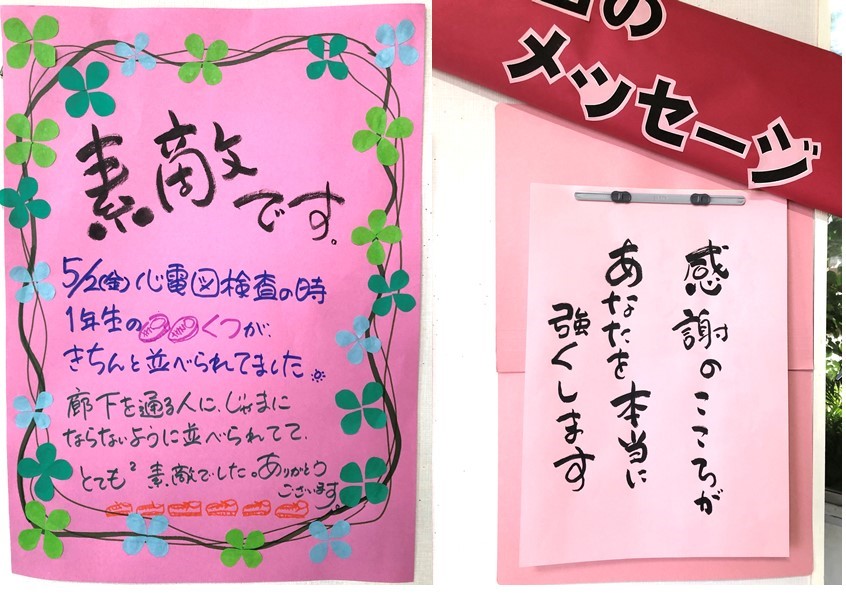 素敵です。
5/2(金)心電図検査の時
1年生のくつが、
きちんと並べられてました
廊下を通る人に、じゃまに
ならないように並べられてて、
とても² 素敵でした。ありがとう
ございます。
の
メッセージ
感謝のこころが
あなたを本当に
強くします